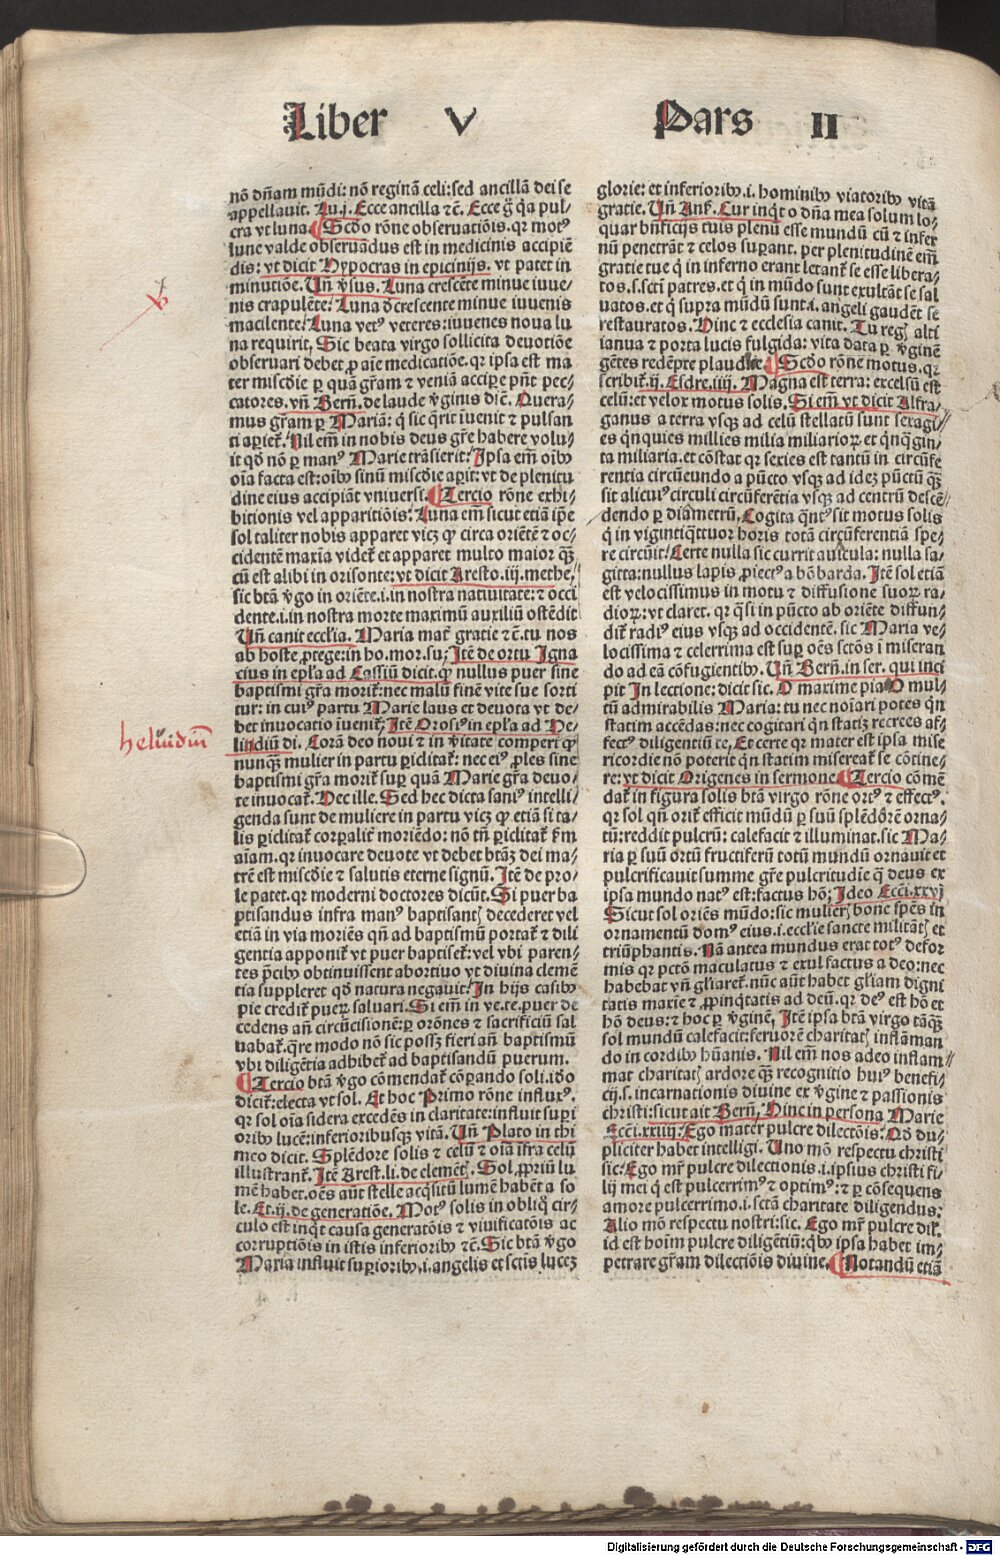 Liber V Pars II
nō dn̄am mūdi: nō reginā celi: sed ancillā dei se
appellauit. Lu.j. Ecce ancilla ⁊c̄. Ecce g̊ q̄a pul⸗
cra vt luna. ¶ Scd̄o rōne obseruatiōis. qr motꝰ
lune valde obseruādus est in medicinis accipiē
dis: vt dicit Hypocras in epicinijs. vt patet in
minutiōe. Un̄ v̄sus. Luna crescēte minue iuue⸗
nis crapulēte! Luna d̄crescente minue iuuenis
macilente! Luna vetꝰ veteres: iuuenes noua lu
na requirit, Sic beata virgo sollicita deuotiōe
obseruari debet ꝓ aīe medicatiōe. qr ipsa est ma
ter misc̄die ꝑ quā gr̄am ⁊ veniā accipe pn̄t pec⸗
catores. vn̄ Bern̄. de laude v̄ginis dic̄. Quera⸗
mus gr̄am ꝑ Mariā: q̇ sic q̄rit iuenit ⁊ pulsan
ti aꝑiet᷑. Nil em̄ in nobis deus gr̄e habere volu⸗
it qd̄ nō ꝑ manꝰ Marie trāsierit! Ipsa em̄ oībꝰ
oīa facta est: oībꝰ sinū misc̄die aꝑit: vt de plenitu
dine eius accipiāt vniuersi. ¶ Tercio rōne exhi⸗
bitionis vel apparitiōis. Luna em̄ sicut etiā ip̄e
sol taliter nobis apparet vicꝫ ꝙ circa oriētē ⁊ oc⸗
cidentē maxīa videt᷑ et apparet multo maior q̄ꝫ
cū est alibi in orisonte: vt dicit Aresto. iij. methe,
sic btā v̄go in oriēte .i. in nostra natiuitate: ⁊ occi
dente .i. in nostra morte maximū auxiliū ostēdit
Un̄ canit eccl'ia. Maria mat̄ gratie ⁊c̄. tu nos
ab hoste ꝓtege: in ho. mor. su; Itē de ortu Igna
cius in epl'a ad Cassiū dicit. ꝙ nullus puer sine
baptismi gr̄a morit᷑: nec malū finē vite sue sorti
tur: in cuiꝰ partu Marie laus et deuota vt de⸗
bet inuocatio iuenit᷑; Itē Orosiꝰ in epl'a ad He⸗
lindiū di. Corā deo noui ⁊ in v̄itate comperi ꝙ
nunqꝫ mulier in partu ꝑiclitat᷑: nec eiꝰ ꝓles sine
baptismi gr̄a morit᷑ suꝑ quā Marie gr̄a deuo⸗
te inuocat᷑. Hec ille. Sed hec dicta saniꝰ intelli⸗
genda sunt de muliere in partu vicꝫ ꝙ etiā si ta⸗
lis ꝑiclitat᷑ corꝑalit᷑ moriēdo: nō tn̄ ꝑiclitat᷑ ẜm
aīam. qr inuocare deuote vt debet btāꝫ dei ma⸗
trē est misc̄die ⁊ salutis eterne signū. Itē de pro⸗
le patet. qr moderni doctores dicūt. Si puer ba
ptisandus infra manꝰ baptisantꝭ decederet vel
etiā in via moriēs qn̄ ad baptismū portat᷑ ⁊ dili
gentia apponit᷑ vt puer baptiset᷑: vel vbi paren⸗
tes p̄cibꝰ obtinuissent abortiuo vt diuina clemē
tia suppleret qd̄ natura negauit! In hijs casibꝰ
pie credit᷑ pueꝝ saluari. Si em̄ in ve. te. puer de
cedens an̄ circūcisionē: ꝑ orōnes ⁊ sacrificiū sal
uabat᷑. q̄re modo nō sic possꝫ fieri an̄ baptismū
vbi diligētia adhibet᷑ ad baptisandū puerum.
¶ Tercio btā v̄go cōmendat᷑ cōꝑando soli. id̄o
dicit᷑: electa vt sol. Et hoc Primo rōne influxꝰ.
qr sol oīa sidera excedēs in claritate: influit suꝑi
oribꝰ lucē: inferioribusqꝫ vitā. Un̄ Plato in thi
meo dicit. Splēdore solis ⁊ celū ⁊ oīa īfra celū
illustrant᷑. Itē Arest. li. de elemētꝭ. Sol ꝓpriū lu
mē habet. oēs aūt stelle acq̄sitū lumē habēt a so
le. Et .ij. de generatiōe. Motꝰ solis in obliq̇ cir⸗
culo est inq̄t causa generatōis ⁊ viuificatōis ac
corruptiōis in istis inferioribꝰ ⁊c̄. Sic btā v̄go
Maria influit suꝑioribꝰ .i. angelis et sctīs lucez
glorie: et inferioribꝰ .i. hominibꝰ viatoribꝰ vitā
gratie. Un̄ Anẜ. Cur inq̄t o dn̄a mea solum lo⸗
quar bn̄ficijs tuis plenū esse mundū cū ⁊ infer
nū penetrāt ⁊ celos suꝑant. per plenitudinē em̄
gratie tue q̇ in inferno erant letant᷑ se esse libera⸗
tos .s. sctī patres. et q̇ in mūdo sunt exultāt se sal
uatos. et q̇ supra mūdū sunt .i. angeli gaudēt se
restauratos. Hinc ⁊ ecclesia canit. Tu regꝭ alti
ianua ⁊ porta lucis fulgida: vita data ꝑ v̄ginē
gētes redēpte plaudite ¶ Scd̄o rōne motus. qr
scribit᷑ .ij. Esdre. iiij. Magna est terra: excelsū est
celū: et velox motus solis. Si em̄ vt dicit Alfra⸗
ganus a terra vsqꝫ ad celū stellatū sunt sexagi⸗
es q̄nquies millies milia miliarioꝝ. et q̄nq̄gin⸗
ta miliaria. et cōstat qr sexies est tantū in circūfe
rentia circūeundo a pūcto vsqꝫ ad ideꝫ pūctū qꝫ
sit alicuiꝰ circuli circūferētia vsqꝫ ad centrū descē⸗
dendo ꝑ diametrū, Cogita q̄ntꝰ sit motus solis
q̇ in vigintiq̄ttuor horis totā circūferentiā spe⸗
re circūit! Certe nulla sic currit auicula: nulla sa⸗
gitta: nullus lapis ꝓiectꝰ a bōbarda. Itē sol etiā
est velocissimus in motu ⁊ diffusione suoꝝ ra⸗
dioꝝ: vt claret. qr q̄si in pūcto ab oriēte diffun⸗
dit᷑ radiꝰ eius vsqꝫ ad occidentē. sic Maria ve⸗
locissima ⁊ celerrima est suꝑ oēs sctōs ī miseran
do ad eā cōfugientibꝰ. Un̄ Bern̄. in ser. qui inci
pit In lectione: dicit sic. O maxime pia O mul⸗
tū admirabilis Maria: tu nec noīari potes q̇n
statim accēdas: nec cogitari q̇n statiꝫ recrees af⸗
fectꝰ diligentiū te, Et certe qr mater est ipsa mise
ricordie nō poterit q̇n statim misereat᷑ se cōtine⸗
re: vt dicit Origenes in sermone. ¶ Tercio cōmē
dat᷑ in figura solis btā virgo rōne ortꝰ ⁊ effectꝰ.
qr sol qn̄ orit᷑ efficit mūdū ꝑ suū splēdorē orna⸗
tū: reddit pulcrū: calefacit ⁊ illuminat. sic Ma⸗
ria ꝑ suū ortū fructiferū totū mundū ornauit et
pulcrificauit summe gr̄e pulcritudie q̄ deus ex
ipsa mundo natꝰ est: factus hō; Ideo Ecci. xxvj
Sicut sol oriēs mūdo: sic mulierꝭ bone spēs in
ornamentū domꝰ eius .i. eccl'ie sancte militātꝭ et
triūphantis. Nā antea mundus erat totꝰ defor
mis qr pctm̄ maculatus ⁊ exul factus a deo: nec
habebat vn̄ gl'iaret᷑. nūc aūt habet gl'iam digni
tatis maxie ⁊ ꝓpinq̄tatis ad deū. qr deꝰ est hō et
hō deus: ⁊ hoc ꝑ v̄ginē, Itē ipsa btā virgo tāqꝫ
sol mundū calefacit: feruorē charitatꝭ inflāman
do in cordibꝰ hūanis. Nil em̄ nos adeo inflam⸗
mat charitatꝭ ardore q̄ꝫ recognitio huiꝰ benefi⸗
cij .s. incarnationis diuine ex v̄gine ⁊ passionis
christi: sicut ait Bern̄, Hinc in persona Marie
Ecci. xxiiij. Ego mater pulcre dilectōis. Qd̄ du⸗
pliciter habet intelligi. Uno mō respectu christi
sic. Ego mr̄ pulcre dilectionis .i. ipsius christi fi⸗
lij mei q̇ est pulcerrimꝰ ⁊ optimꝰ: ⁊ ꝑ cōsequens
amore pulcerrimo .i. sctā charitate diligendus:
Alio mō respectu nostri: sic. Ego mr̄ pulcre dil̄.
id est hoīm pulcre diligētiū: q̇bꝰ ipsa habet im⸗
petrare gr̄am dilectiōis diuine. ¶ Notandū etiā
heluidiū
Digitalisierung gefördert durch die Deutsche Forschungsgemeinschaft - DFG